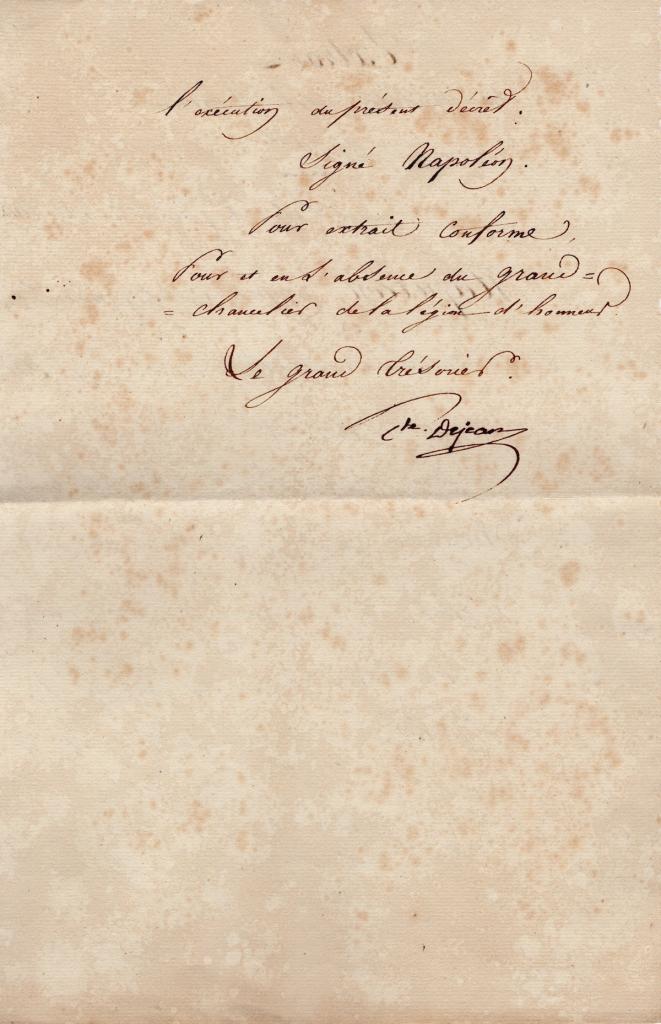 l'exécution du présent décret.
Signé Napoléon.
Pour extrait Conforme,
Pour et en L'absence du grand=
=chancelier de la légion d'honneur
Le grand trésorier.
Dejean